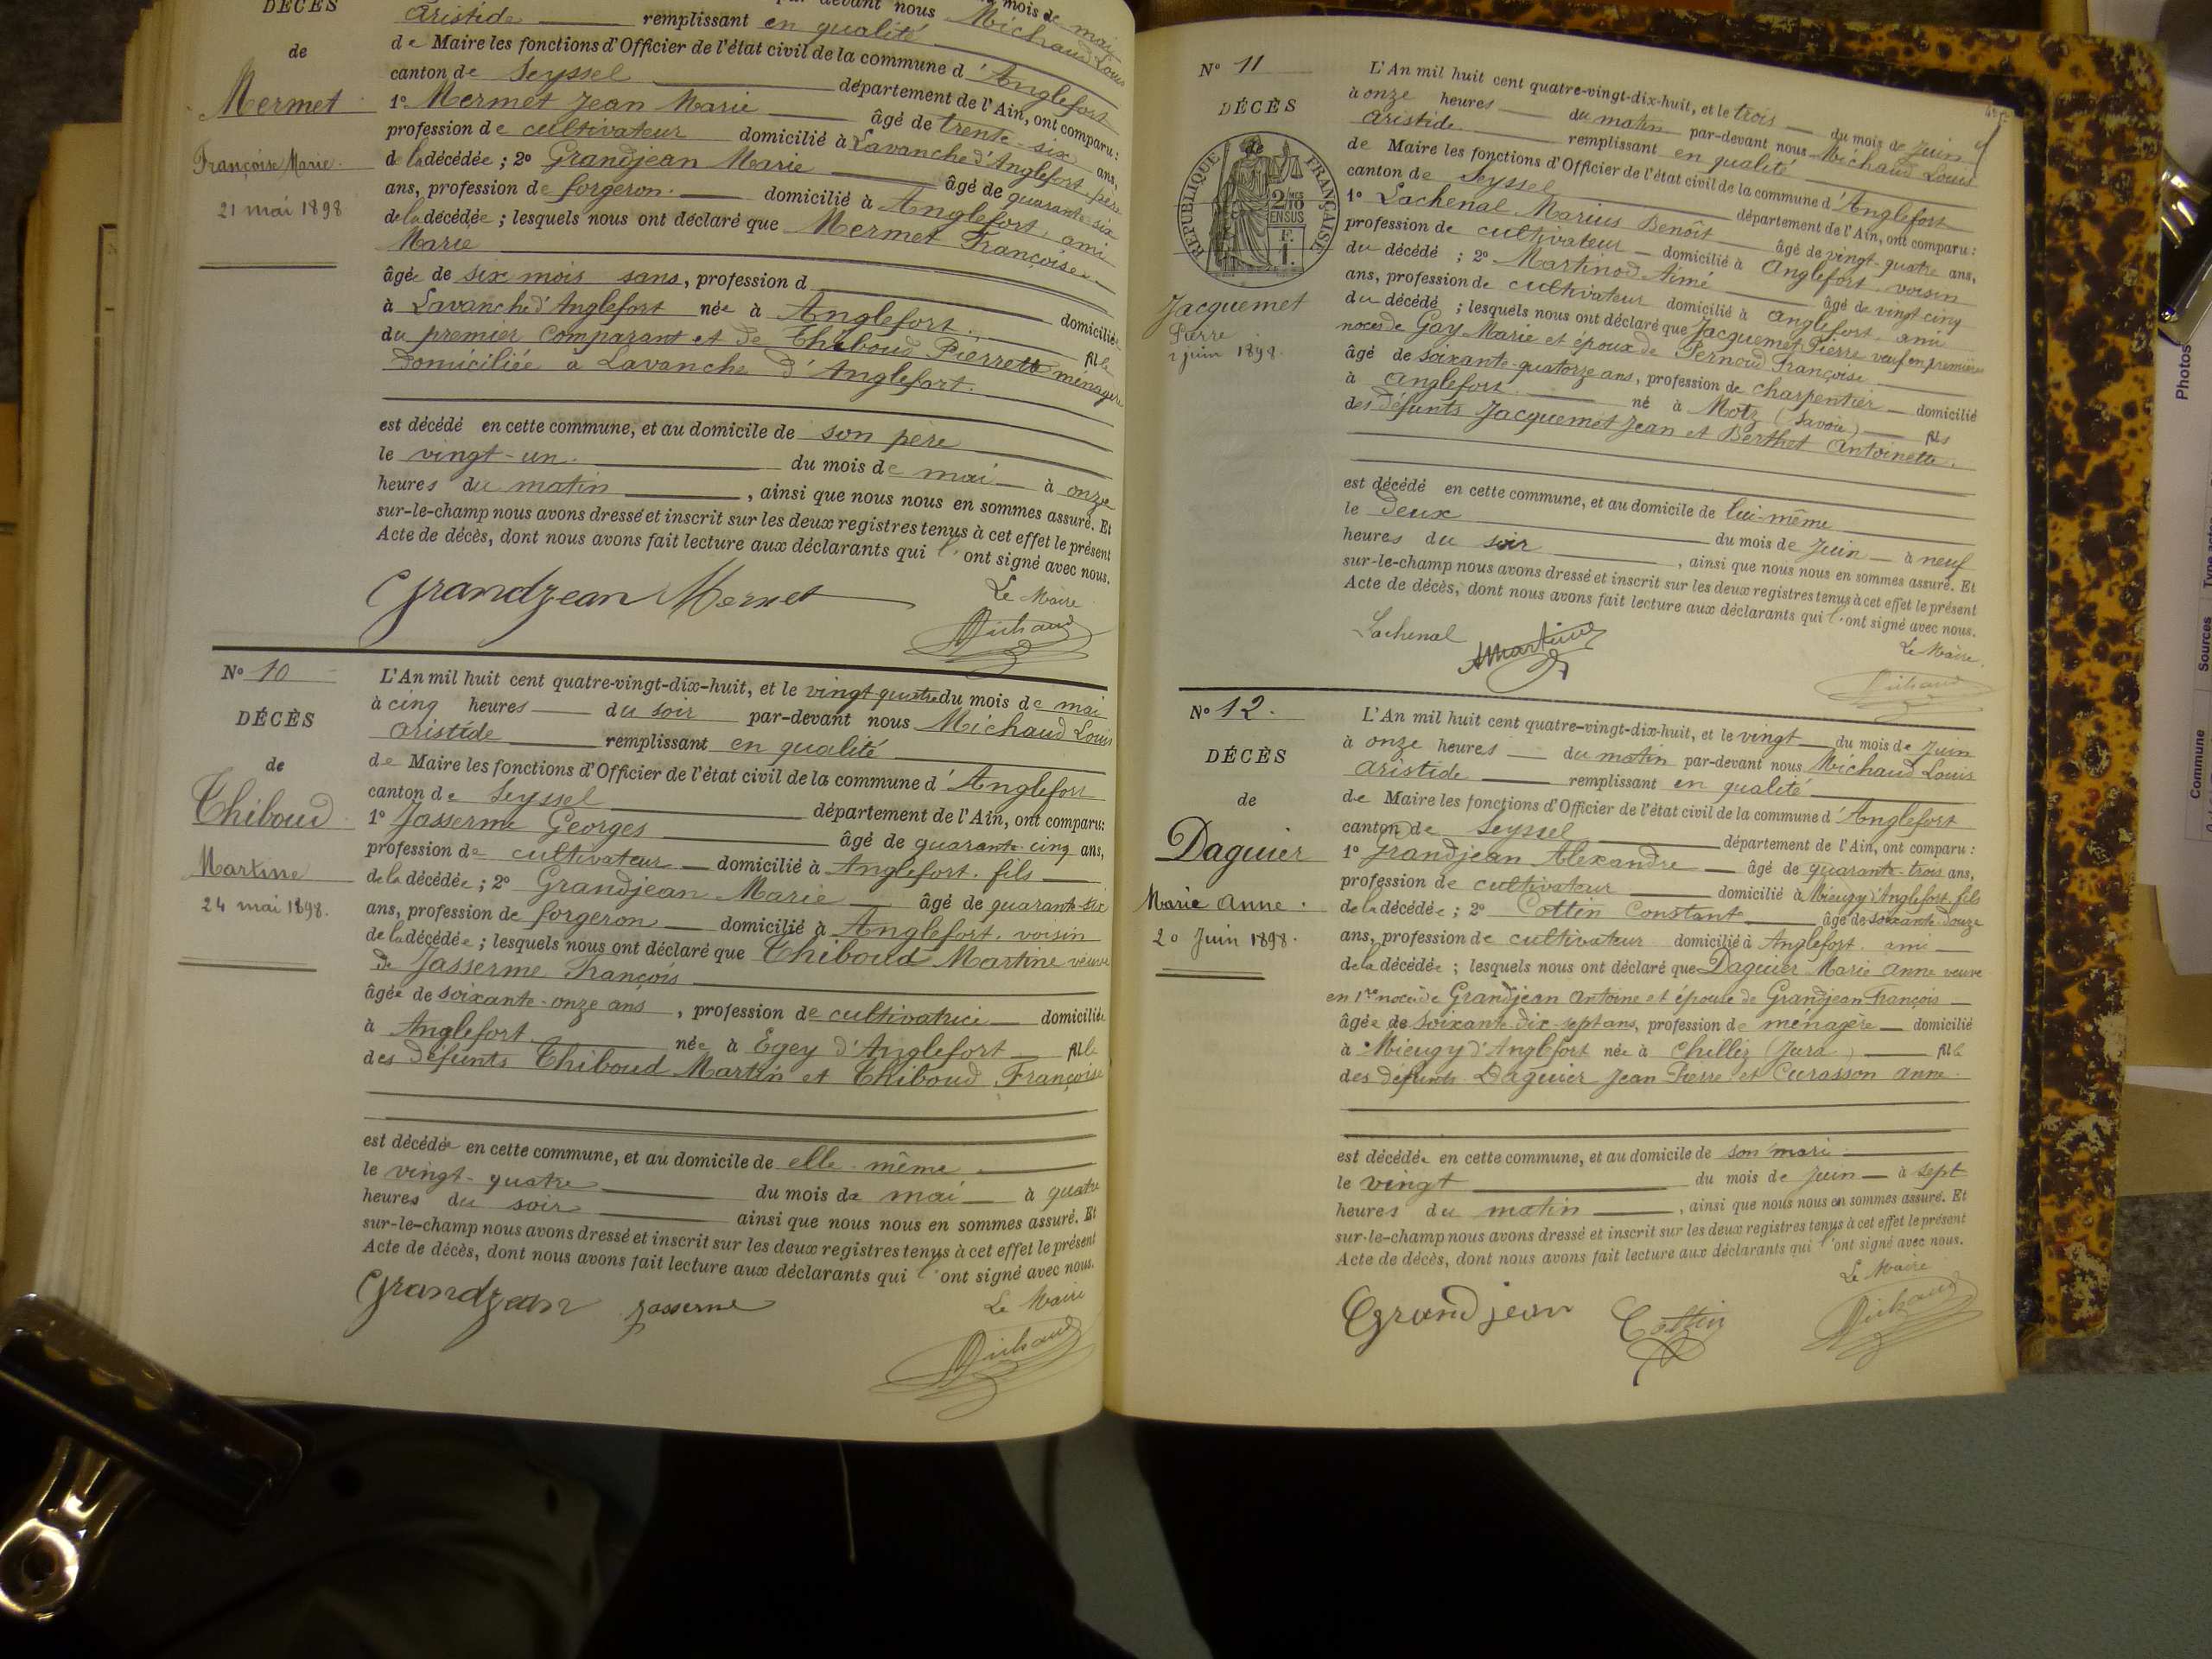 DÉCÈS
de
Mermet
Françoise Marie.
21 mai 1898
mois de mai
devant nous Michaud Louis
Aristide remplissant en qualité
de Maire les fonctions d'Officier de l'état civil de la commune d'Anglefort
canton de Seyssel département de l'Ain, ont comparu :
1º Mermet Jean Marie âgé de trente-six ans,
profession de cultivateur domicilié à Lavanche d'Anglefort, père
de la décédée ; 2º Grandjean Marie âgé de quarante-six
ans, profession de forgeron. domicilié à Anglefort, ami
de la décédée ; lesquels nous ont déclaré que Mermet Françoise
Marie
âgée de six mois sans, profession d domiciliée
à Lavanche d'Anglefort née à Anglefort. fille
du premier comparant et de Thiboud Pierrette ménagère
domiciliée à Lavanche d'Anglefort.
est décédé en cette commune, et au domicile de son père
le vingt-un. du mois de mai à onze
heures du matin , ainsi que nous nous en sommes assuré. Et
sur-le-champ nous avons dressé et inscrit sur les deux registres tenus à cet effet le présent
Acte de décès, dont nous avons fait lecture aux déclarants qui l'ont signé avec nous.
Grandjean Mermet Le Maire
Michaud
Nº 10
DÉCÈS
de
Thiboud
Martine
24 mai 1898.
L'An mil huit cent quatre-vingt-dix-huit, et le vingt quatre du mois de mai
à cinq heures du soir par-devant nous Michaud Louis
Aristide remplissant en qualité
de Maire les fonctions d'Officier de l'état civil de la commune d'Anglefort
canton de Seyssel département de l'Ain, ont comparu:
1º Jasserme Georges âgé de quarante-cinq ans,
profession de cultivateur domicilié à Anglefort. fils
de la décédée ; 2º Grandjean Marie âgé de quarante-six
ans, profession de forgeron domicilié à Anglefort. voisin
de la décédée ; lesquels nous ont déclaré que Thiboud Martine veuve
de Jasserme François
âgée de soixante-onze ans , profession de cultivatrice domiciliée
à Anglefort née à Egey d'Anglefort fille
des défunts Thiboud Martin et Thiboud Françoise
est décédée en cette commune, et au domicile de elle-même
le vingt-quatre du mois de mai à quatre
heures du soir ainsi que nous nous en sommes assuré. Et
sur-le-champ nous avons dressé et inscrit sur les deux registres tenus à cet effet le présent
Acte de décès, dont nous avons fait lecture aux déclarants qui l'ont signé avec nous.
Grandjean Jasserme Le Maire
Michaud
Nº 11
DÉCÈS
de
RÉPUBLIQUE FRANÇAISE
2/10MES
EN SUS
F.
1.
Jacquemet
Pierre
2 juin 1898.
L'An mil huit cent quatre-vingt-dix-huit, et le trois du mois de juin
à onze heures du matin par-devant nous Michaud Louis
Aristide remplissant en qualité
de Maire les fonctions d'Officier de l'état civil de la commune d'Anglefort
canton de Seyssel département de l'Ain, ont comparu :
1º Lachenal Marius Benoît âgé de vingt-quatre ans,
profession de cultivateur domicilié à Anglefort. voisin
du décédé ; 2º Martinod Aimé âgé de vingt cinq
ans, profession de cultivateur domicilié à Anglefort. ami
du décédé ; lesquels nous ont déclaré que Jacquemet Pierre veuf en premières
noces de Gay Marie et époux de Pernoud Françoise
âgé de soixante-quatorze ans, profession de charpentier domicilié
à Anglefort. né à Motz (Savoie) fils
des défunts Jacquemet Jean et Berthet Antoinette.
est décédé en cette commune, et au domicile de lui-même
le deux du mois de juin à neuf
heures du soir , ainsi que nous nous en sommes assuré. Et
sur-le-champ nous avons dressé et inscrit sur les deux registres tenus à cet effet le présent
Acte de décès, dont nous avons fait lecture aux déclarants qui l'ont signé avec nous.
Lachenal AMartinod Le Maire.
Michaud
Nº 12.
DÉCÈS
de
Daguier
Marie Anne.
20 Juin 1898.
L'An mil huit cent quatre-vingt-dix-huit, et le vingt du mois de Juin
à onze heures du matin par-devant nous Michaud Louis
Aristide remplissant en qualité
de Maire les fonctions d'Officier de l'état civil de la commune d'Anglefort
canton de Seyssel département de l'Ain, ont comparu :
1º Grandjean Alexandre âgé de quarante-trois ans,
profession de cultivateur domicilié à Mieugy d'Anglefort fils
de la décédée ; 2º Cottin Constant âgé de soixante-douze
ans, profession de cultivateur domicilié à Anglefort. ami
de la décédée ; lesquels nous ont déclaré que Daguier Marie Anne veuve
en 1res noces de Grandjean Antoine et épouse de Grandjean François
âgée de soixante-dix-sept ans, profession de ménagère domicilié
à Mieugy d'Anglefort née à Chilliz (Jura) fille
des défunts Daguier Jean Pierre et Curasson Anne.
est décédée en cette commune, et au domicile de son mari
le vingt du mois de Juin à sept
heures du matin , ainsi que nous nous en sommes assuré. Et
sur-le-champ nous avons dressé et inscrit sur les deux registres tenus à cet effet le présent
Acte de décès, dont nous avons fait lecture aux déclarants qui l'ont signé avec nous.
Grandjean Cottin Le Maire
Michaud
Photos
Commune Sources Type actes